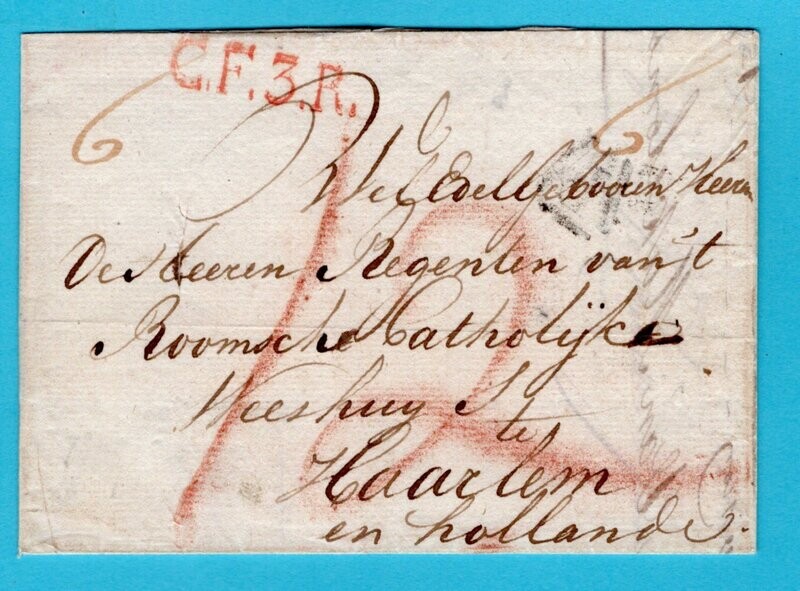 C.F.3.R.
6 6
12
Wel Edelgebooren Heeren
De Heeren Regenten van 't
Roomsche Catholijke
Weeshuys te
Haarlem
en hollande.